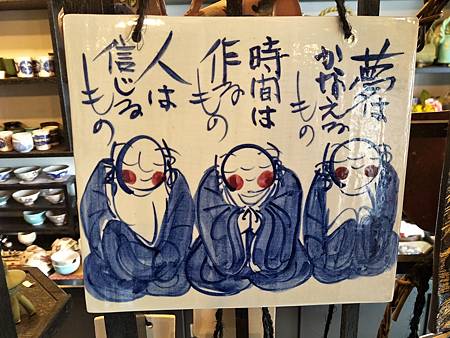 夢は
かなえる
もの
時間は
作る
もの
人は
信じる
もの